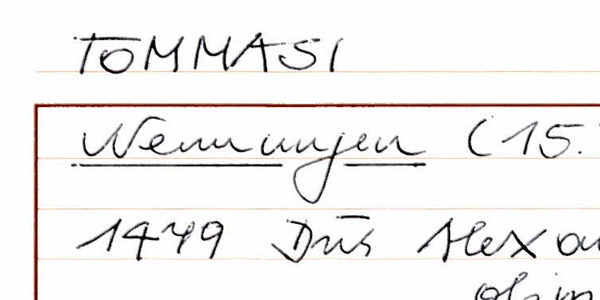 TOMMASI
Nennungen (15.
1479 Dns Alexa
olim